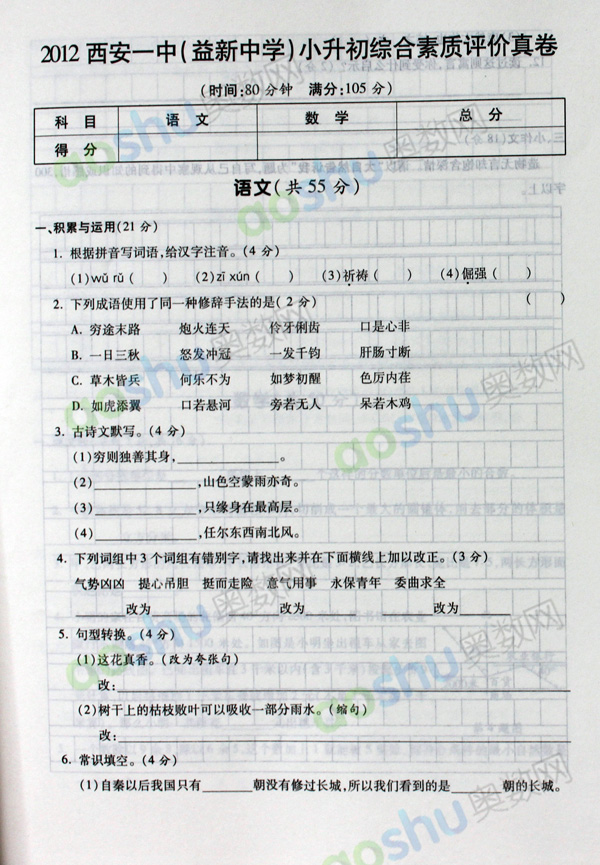 2012 西安一中(益新中学)小升初综合素质评价真卷
(时间:80 分钟 满分:105 分)
科 目 语 文 数 学 总 分
得 分
语文(共 55 分)
一、积累与运用(21 分)
1. 根据拼音写词语,给汉字注音。(4 分)
(1)wǔ rǔ ( ) (2)zī xún ( ) (3)祈祷 ( ) (4)倔强 ( )
2. 下列成语使用了同一种修辞手法的是( 2 分) ( )
A. 穷途末路 炮火连天 伶牙俐齿 口是心非
B. 一日三秋 怒发冲冠 一发千钧 肝肠寸断
C. 草木皆兵 何乐不为 如梦初醒 色厉内荏
D. 如虎添翼 口若悬河 旁若无人 呆若木鸡
3. 古诗文默写。(4 分)
(1)穷则独善其身,____________。
(2)____________,山色空蒙雨亦奇。
(3)____________,只缘身在最高层。
(4)____________,任尔东西南北风。
4. 下列词组中 3 个词组有错别字,请找出来并在下面横线上加以改正。(3 分)
气势凶凶 提心吊胆 挺而走险 意气用事 永保青年 委曲求全
______改为______ ______改为______ ______改为______
5. 句型转换。(4 分)
(1)这花真香。(改为夸张句)
改:____________
(2)树干上的枯枝败叶可以吸收一部分雨水。(缩句)
改:____________
6. 常识填空。(4 分)
(1)自秦以后我国只有______朝没有修过长城,所以我们看到的是______朝的长城。
aoshu奥数网
aoshu奥数网
aoshu奥数网
aoshu奥数网
aoshu奥数网
aoshu奥数网